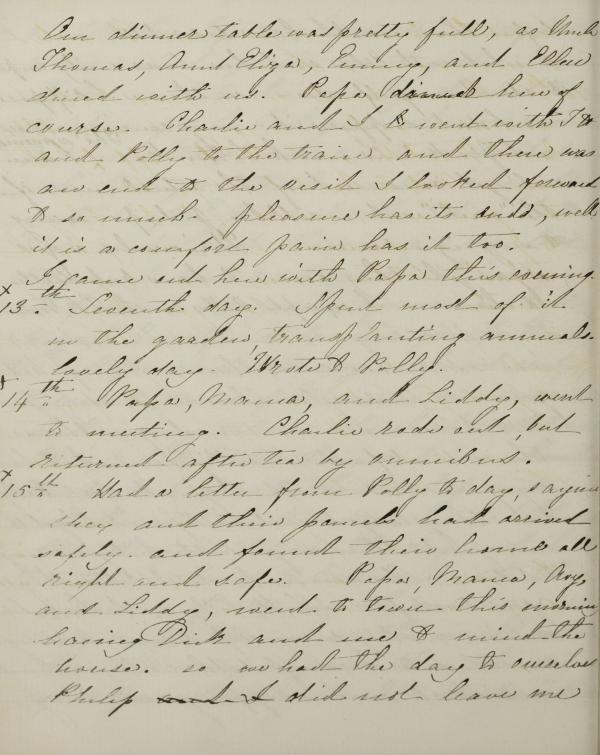 Our dinner table was pretty full, as Uncle
Thomas, Aunt Eliza, Emmy, and Ellen
dined with us. Papa dined here of
course. Charlie and I went with
and Polly to the train and there was
an end to the visit I looked forward
to so much. pleasure has its ends, well
it is a comfort pain has it too.
I came out here with Papa this evening.
x 13th. Seventh day. Spent most of it
in the garden, transplanting annuals.
lovely day. Wrote to Polly.
x 14th " Papa, Mama, and Liddy, went
to meeting. Charlie rode out, but
returned after tea by omnibus.
x 15th " Had a letter from Polly to day, saying
they and their parcels had arrived
safely. and found their home all
right and safe. Papa, Mama,
and Liddy, went to town this morning
leaving Dick and me to mind the
house. so we had the day to ourselves
Philip and I did not leave me